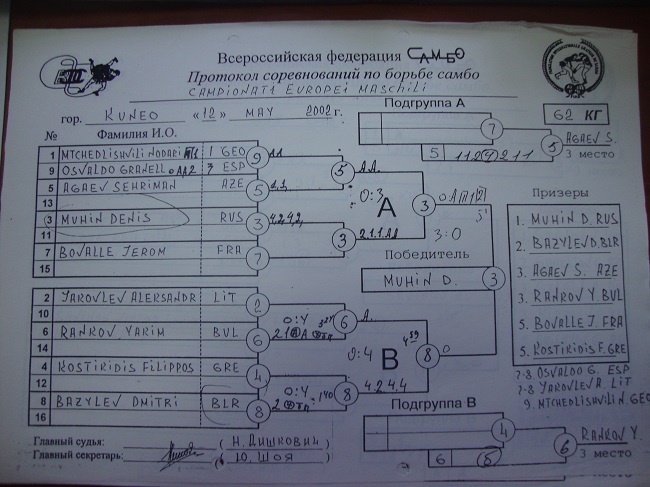 Всероссийская федерация САМБО
Протокол соревнований по борьбе самбо
CAMPIONATI EUROPEI MASCHILI
гор. KUNEO «12» MAY 2002 г.
62 КГ
№ Фамилия И.О.
Подгруппа А
7
5 112 2 1 1
5
AGAEV S.
3 место
1 MTCHEDLISHVILI NODARI GEO
9 OSVALDO GRANELL ESP
5 AGAEV SEHRIMAN AZE
13
3 MUHIN DENIS RUS
11
7 BOVALLE JEROM FRA
15
9
5
3
7
5
3
0:3
А
3
3:0
Победитель
MUHIN D.
3
2 JAKOVLEV ALEKSANDR LIT
10
6 RANKOV YAKIM BUL
14
4 KOSTIKIDIS FILIPPOS GRE
12
8 BAZYLEV DMITRI BLR
16
2
6
4
8
0:4
0:4
6
8
0:4
В
4.2.4.4
8
Призеры
1. MUHIN D. RUS
2. BAZYLEV D. BLR
3. AGAEV S. AZE
3. RANKOV Y. BUL
5. BOVALLE J. FRA
5. KOSTIKIDIS F. GRE
7-8 OSVALDO G. ESP
7-8 JAKOVLEV A. LIT
9. MTCHEDLISHVILI N. GEO
Подгруппа В
4
6 8
6
RANKOV Y.
3 место
Главный судья:
Главный секретарь:
Ю. ШОЯ